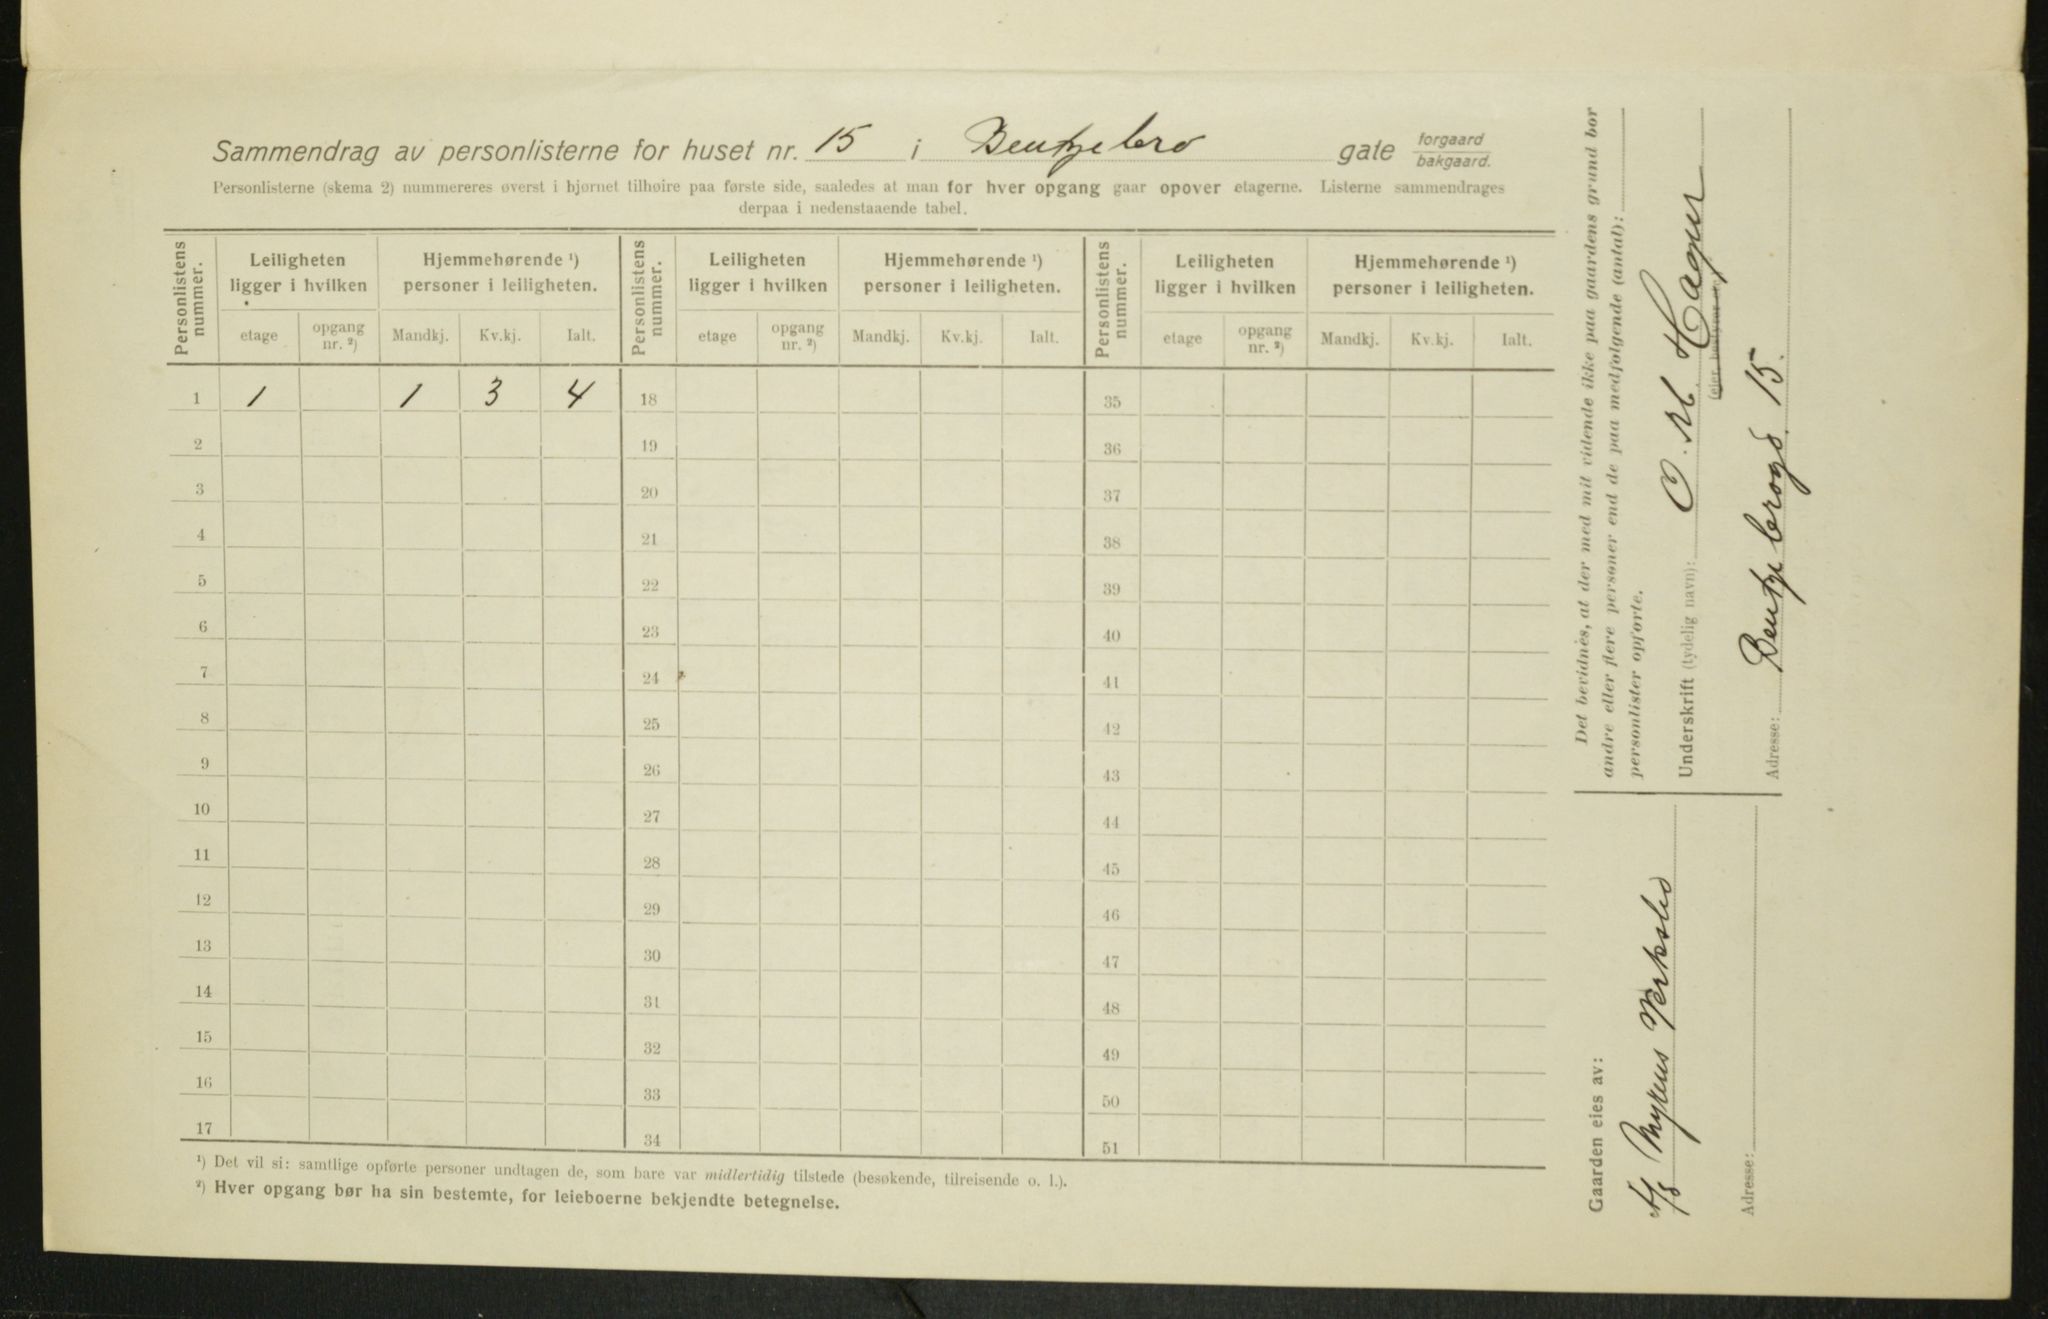 Sammendrag av personlisterne for huset nr. 15 i Bentzebro gate forgaard bakgaard.
Personlisterne (skema 2) nummereres øverst i hjørnet tilhøire paa første side, saaledes at man for hver opgang gaar opover etagerne. Listerne sammendrages
derpaa i nedenstaaende tabel.
Personlistens nummer. Leiligheten ligger i hvilken Hjemmehørende ¹) personer i leiligheten. Personlistens nummer. Leiligheten ligger i hvilken Hjemmehørende ¹) personer i leiligheten. Personlistens nummer. Leiligheten ligger i hvilken Hjemmehørende ¹) personer i leiligheten.
etage opgang nr. ²) Mandkj. Kv.kj. Ialt. etage opgang nr. ²) Mandkj. Kv.kj. Ialt. etage opgang nr. ²) Mandkj. Kv.kj. Ialt.
1 1 1 3 4 18 35
2 19 36
3 20 37
4 21 38
5 22 39
6 23 40
7 24 41
8 25 42
9 26 43
10 27 44
11 28 45
12 29 46
13 30 47
14 31 48
15 32 49
16 33 50
17 34 51
¹) Det vil si: samtlige opførte personer undtagen de, som bare var midlertidig tilstede (besøkende, tilreisende o. l.).
²) Hver opgang bør ha sin bestemte, for leieboerne bekjendte betegnelse.
Det bevidnes, at der med mit vidende ikke paa gaardens grund bor
andre eller flere personer end de paa medfølgende (antal):
personlister opførte.
Underskrift (tydelig navn): O. M. Hagen
(eier, bestyrer
Adresse: Bentzebrogd. 15.
Gaarden eies av:
A/S Myrens Verksted
Adresse: